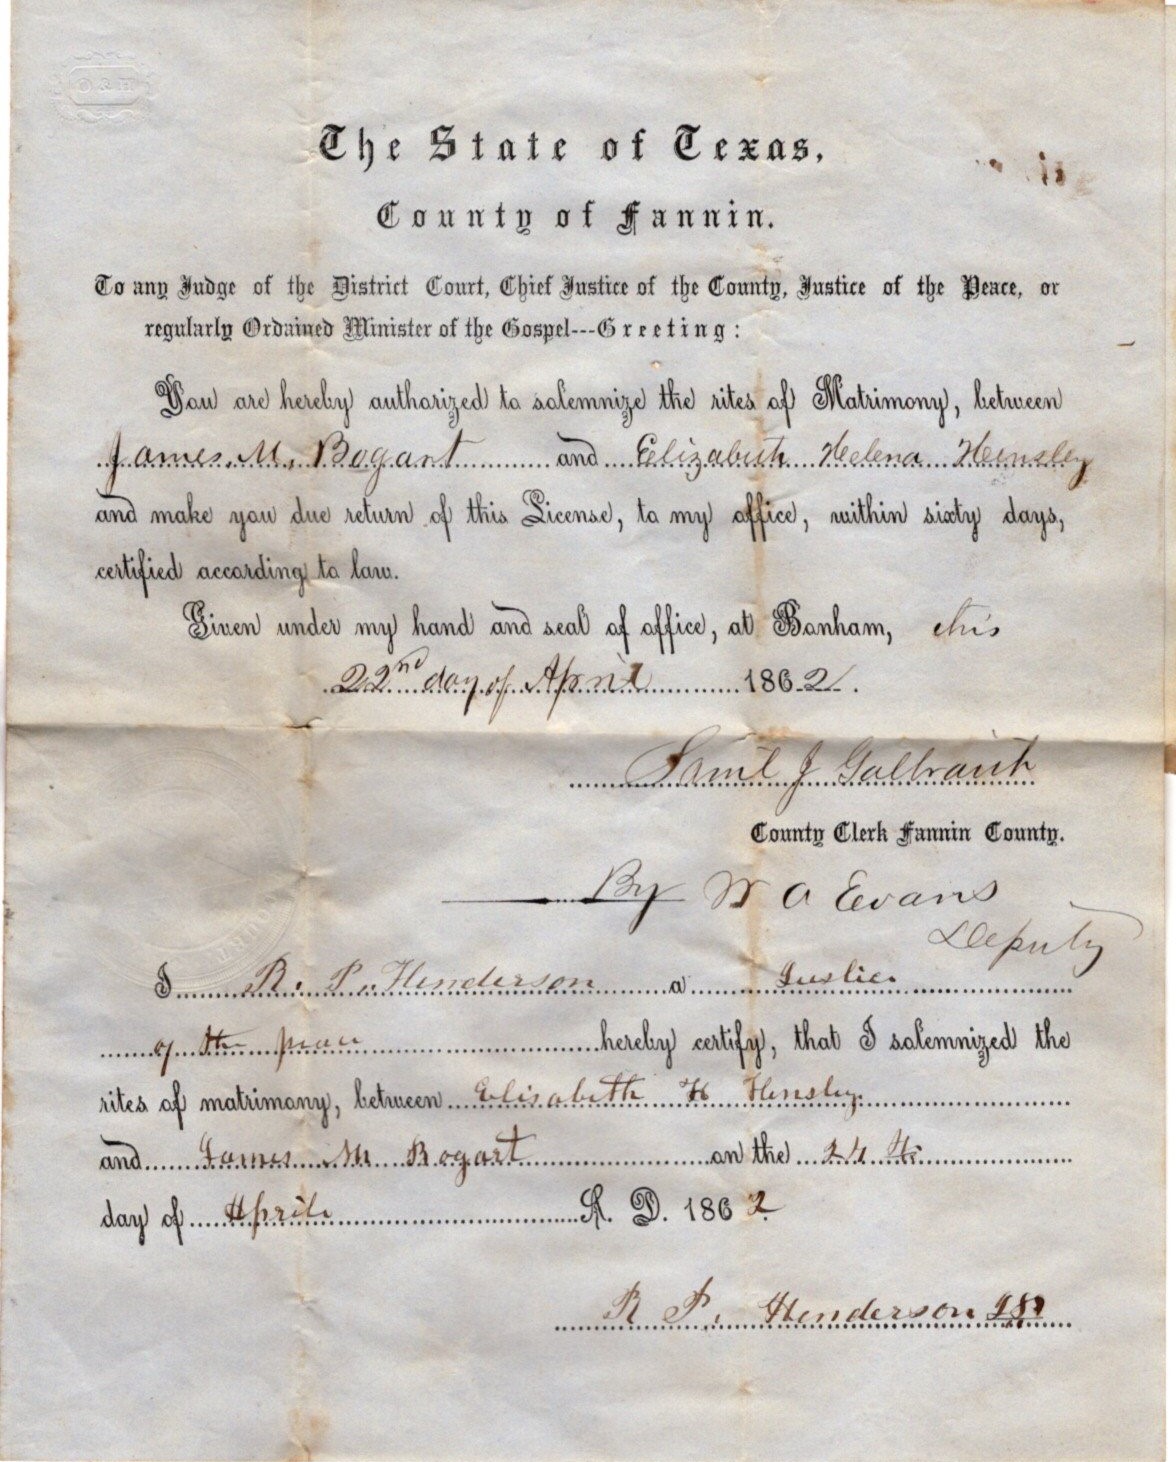 O & H
The State of Texas,
County of Fannin.
To any Judge of the District Court, Chief Justice of the County, Justice of the Peace, or
regularly Ordained Minister of the Gospel---Greeting:
You are hereby authorized to solemnize the rites of Matrimony, between
James. M. Bogart and Elizabeth Helena Hensley
and make you due return of this License, to my office, within sixty days,
certified according to law.
Given under my hand and seal of office, at Bonham, this
22nd day of April 1862.
Saml J Galbraith
County Clerk Fannin County.
By W A Evans
Deputy
I R. P. Henderson a Justice
of the peace hereby certify, that I solemnized the
rites of matrimony, between Elisabeth H Hensley
and James M Bogart on the 24 th
day of April A. D. 1862
R P. Henderson J P